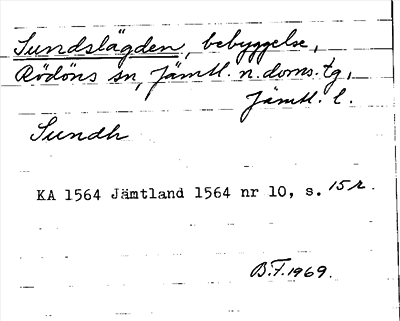 Sundslägden, bebyggelse,
Rödöns sn, Jämtl. n. doms. tg,
Jämtl. l.
Sundh
KA 1564 Jämtland 1564 nr 10, s. 15r.
B.F. 1969.